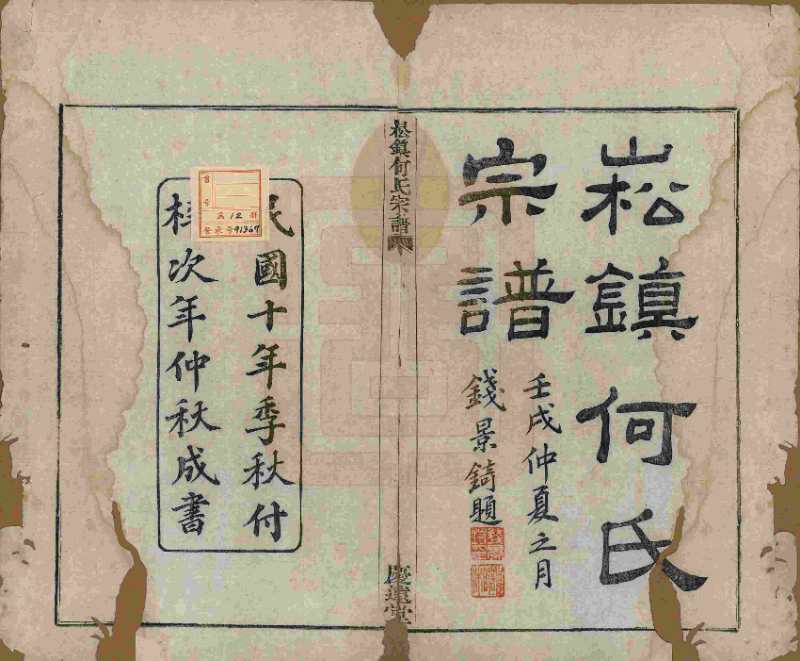 崧鎮何氏
宗譜
壬戌仲夏之月
錢景錡題
崧鎮何氏宗譜
慶遠堂
民國十年季秋付
梓次年仲秋成書
12
91367